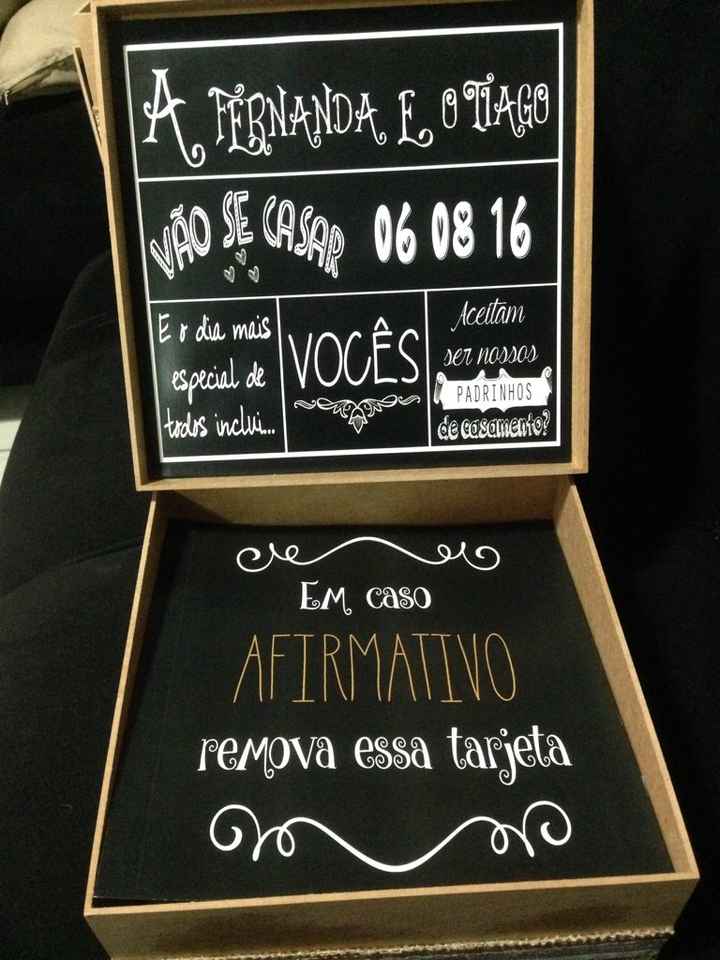 A FERNANDA E O TIAGO
VÃO SE CASAR 06 08 16
E o dia mais
especial de
todos inclui...
VOCÊS
Aceitam
ser nossos
PADRINHOS
de casamento?
Em caso
AFIRMATIVO
remova essa tarjeta